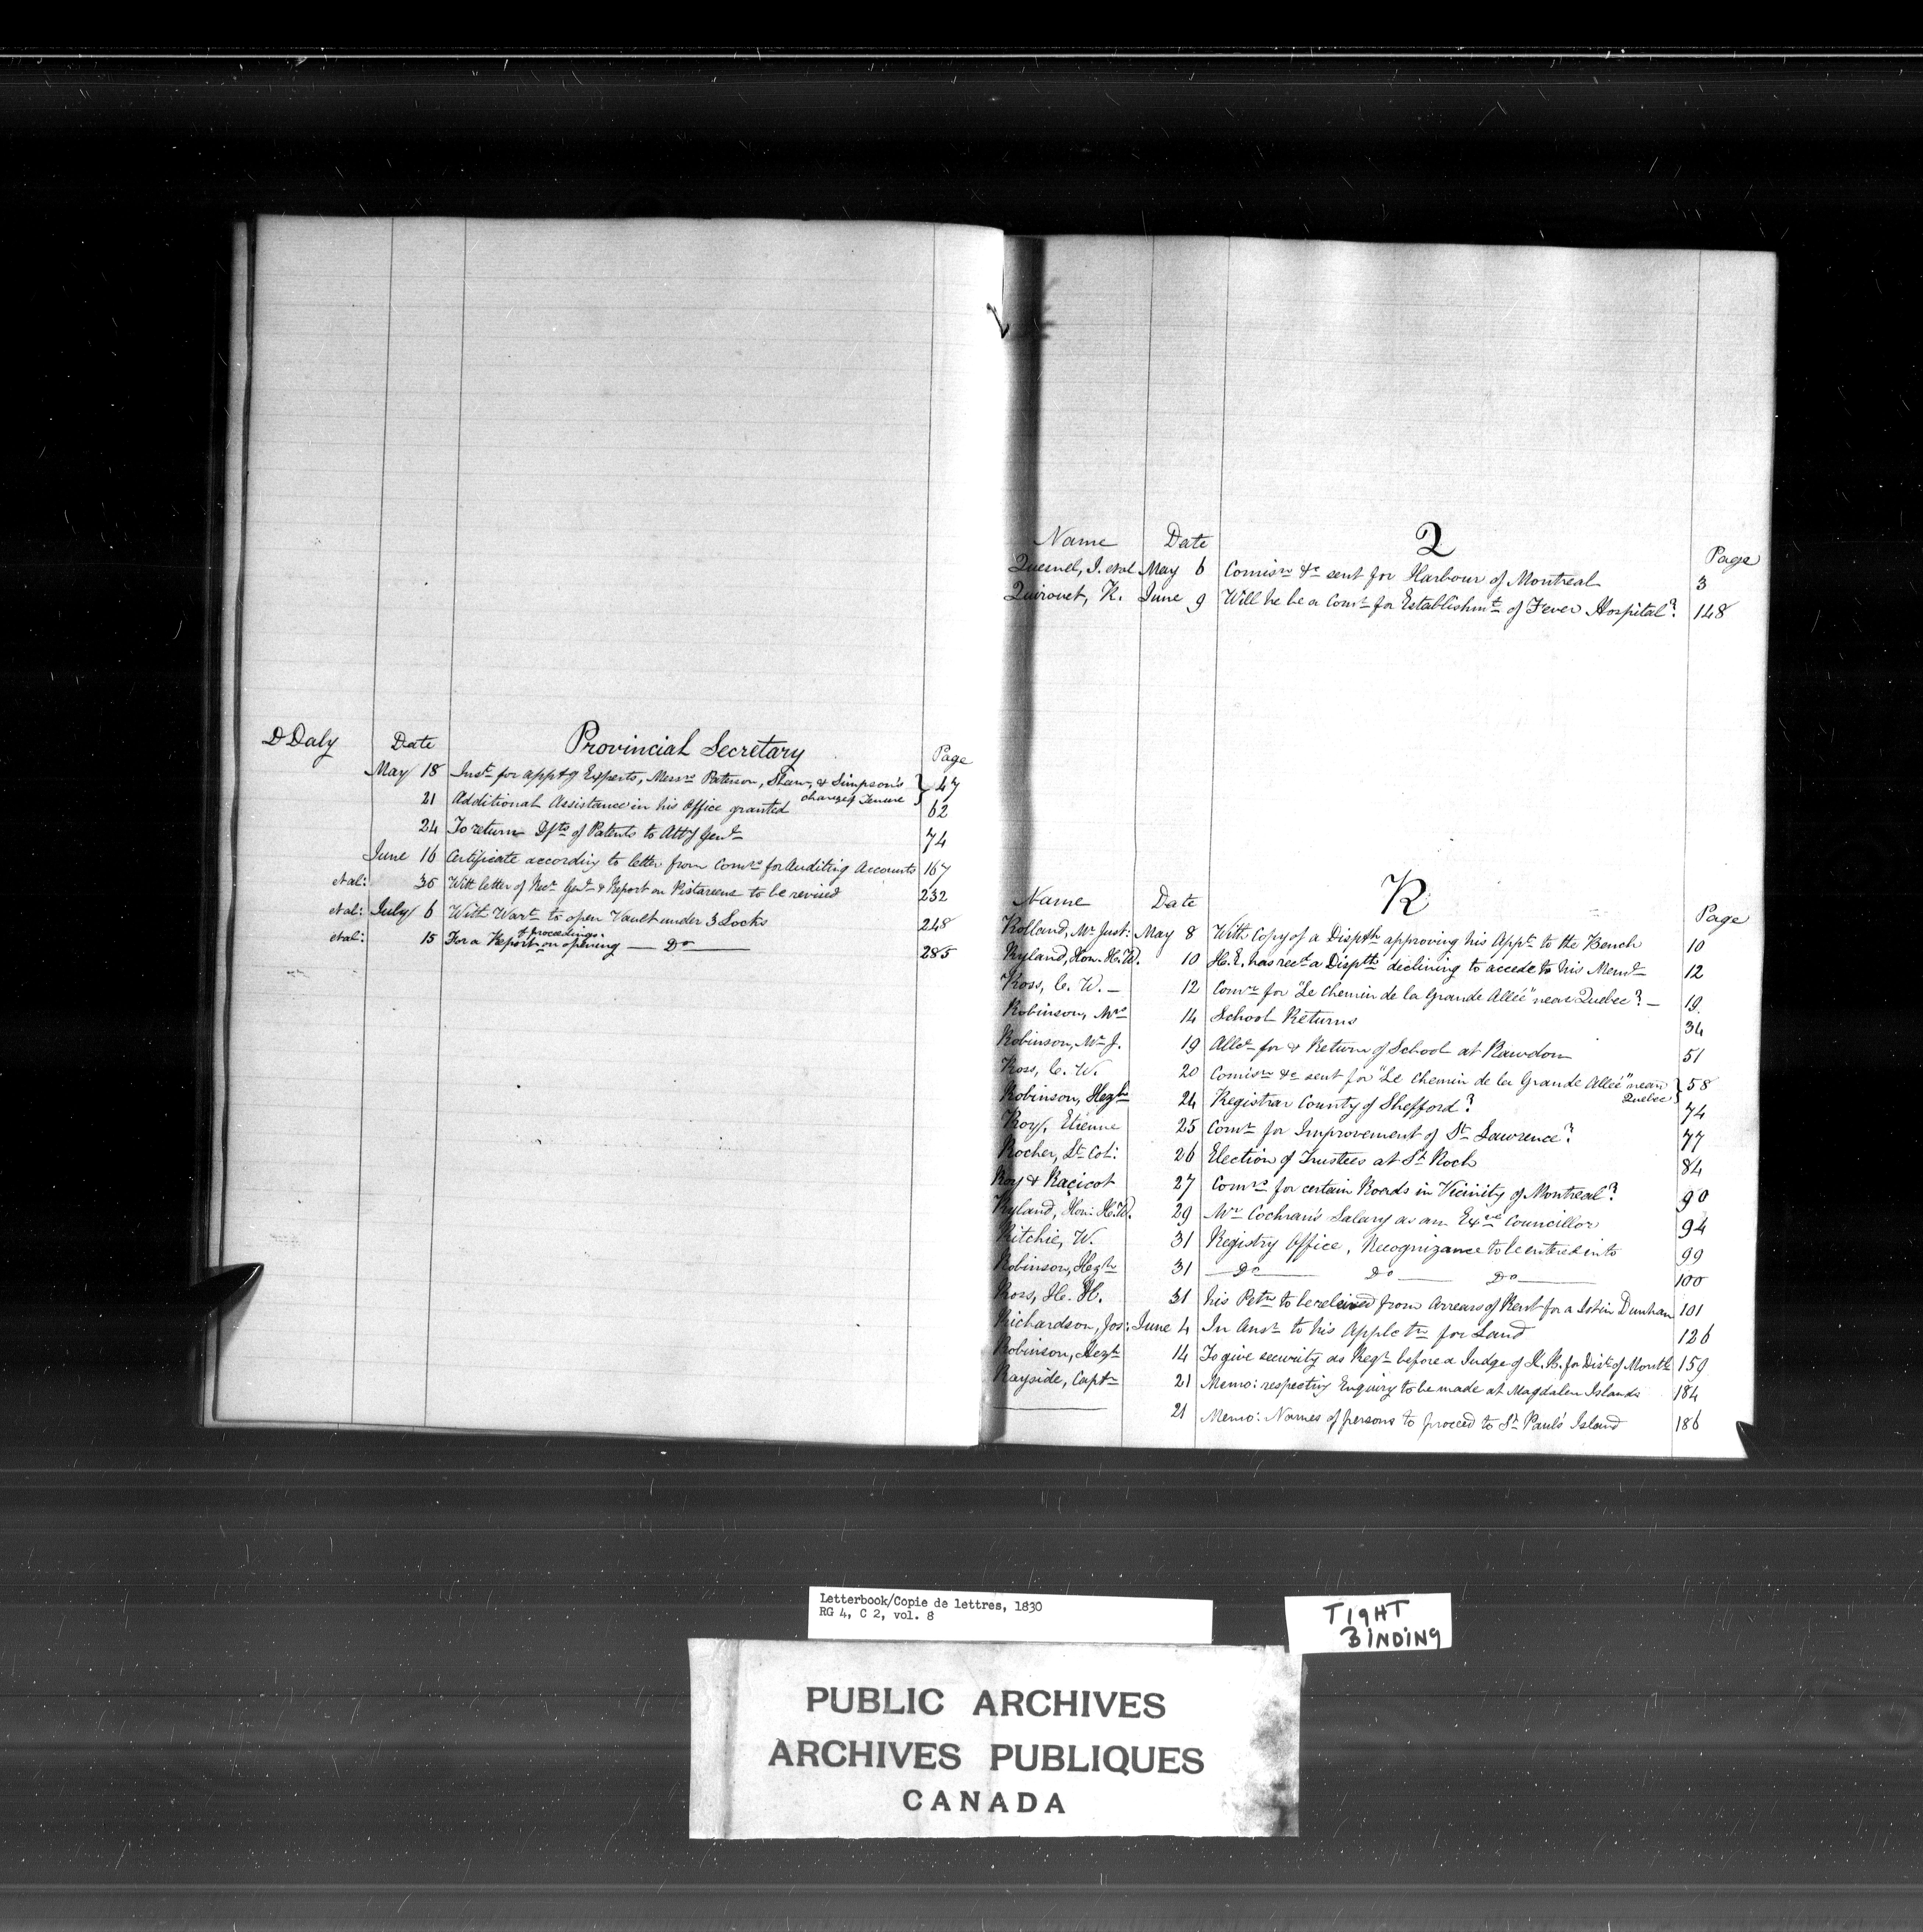 D Daly Date Provincial Secretary Page
May 18 Instn for apptg Experts, Messrs Paterson, Shaw, & Simpson's } 47
change of Tenure
21 Additional Assistance in his Office granted 62
24 To return Dfts of Patents to Atty Genl 74
June 16 Certificate according to letter from Comrs for Auditing Accounts 167
et al: 30 With letter of Recr Genl & Report on Pistareens to be revised 232
et al: July 6 With Wart to open Vault under 3 Locks 248
of proceedings
et al: 15 For a Report on opening — Do — 285
Q
Name Date Page
Quesnel, J. et al May 6 Comisn &c sent for Harbour of Montreal 3
Quirouet, R. June 9 Will he be a Comr for Establishmt of Fever Hospital? 148
R
Name Date Page
Rolland, Mr Just: May 8 With Copy of a Disptch approving his Appt to the Bench 10
Ryland, Hon. H.W. 10 H.E. has recd a Disptch declining to accede to his Meml 12
Ross, C. W. — 12 Comr for "Le Chemin de la Grande Allée" near Quebec? — 19.
Robinson, Mrs 14 School Returns 34
Robinson, Mr J. 19 Allce for & Return of School at Rawdon 51
Ross, C. W. 20 Comisn &c sent for "Le Chemin de la Grande Allée" near } 58
Quebec
Robinson, Hezh 24 Registrar County of Shefford? 74
Roy, Etienne 25 Comr for Improvement of St Lawrence? 77
Rocher, Lt Col: 26 Election of Trustees at St Roch 84
Roy & Racicot 27 Comrs for certain Roads in Vicinity of Montreal? 90
Ryland, Hon: H.W. 29 Mr Cochran's Salary as an Exve Councillor 94
Ritchie, W. 31 Registry Office, Recognizance to be entered into 99
Robinson, Hezh 31 — Do — Do — Do — 100
Ross, H. H. 31 his Petn to be releived from Arrears of Rent for a lot in Dunham 101
Richardson, Jos: June 4 In Ansr to his Applctn for Land 126
Robinson, Hezh 14 To give security as Regr before a Judge of K.B. for Dist of Montl 159
Rayside, Captn 21 Memo: respecting Enquiry to be made at Magdalen Islands 184
——— 21 Memo: Names of persons to proceed to St Paul's Island 186
Letterbook/Copie de lettres, 1830
RG 4, C 2, vol. 8
TIGHT
BINDING
PUBLIC ARCHIVES
ARCHIVES PUBLIQUES
CANADA